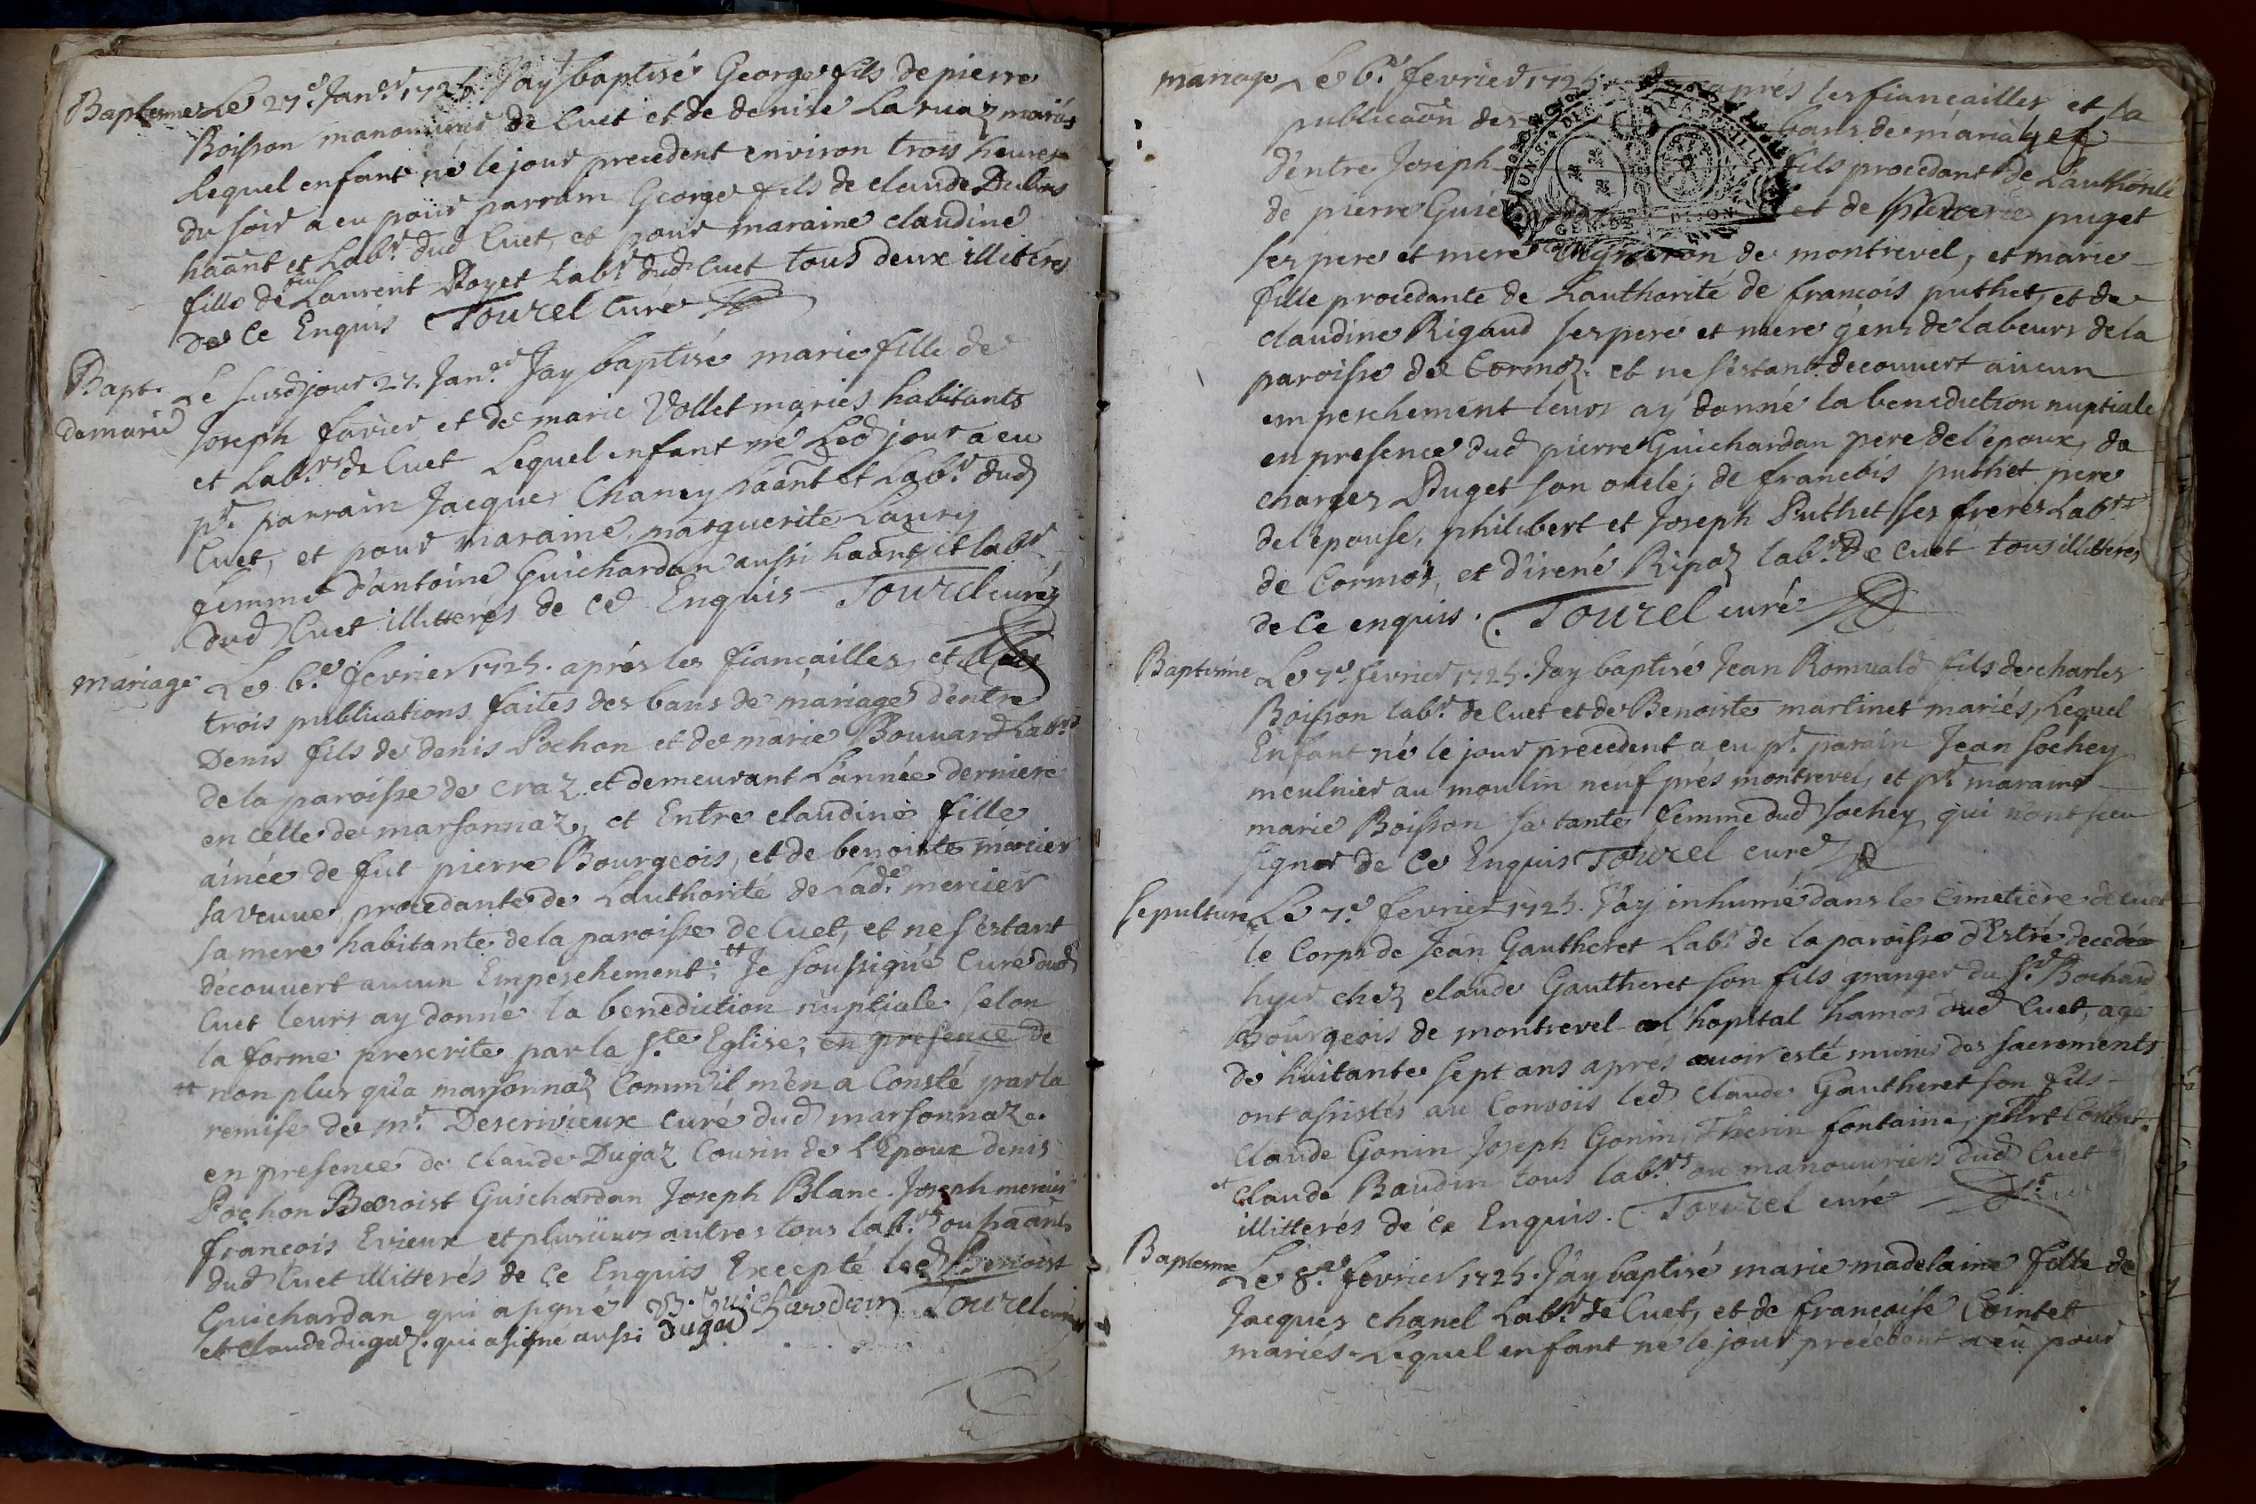 Baptesme Le 27.e Jan.er 1725. J'ay baptisé George fils de pierre
Boisson manouvrier de Cuet et de denise La ruaz mariés
Lequel enfant né le jour precedent environ trois heures
du soir a eu pour parrain George fils de claude Dubois
haãnt et Lab.r dud Cuet, et pour maraine claudine
fille de fut Laurent Royet Lab.r dud Cuet tous deux illiterés
de Ce Enquis Tourel Curé
Bapt. Le susd jour 27. Jan.er Jay baptisé marie fille de
de marie Joseph favier et de marie Vollet mariés habitants
et Lab.rs de Cuet Lequel enfant né Led jour a eu
p.r parrain Jacques Chaney haãnt et Lab.r dud
Cuet, et pour maraine, marguerite Laury
femme d'antoine Guichardan aussi haãnts et lab.r
dud Cuet illitterés de ce Enquis Tourel curé
mariage Le 6.e fevrier 1725. aprés les fiancailles, et les
trois publications faites des bans de mariage d'entre
Denis fils de denis Pochon et de marie Bouvard Lab.rs
de la paroisse de Craz et demeurant L'année derniere
en celle de marsonnaz, et Entre claudine fille
ainée de fut pierre Bourgeois, et de benoiste mercier
sa veuve, procedante de L'authorité de Lad.e mercier
sa mere habitante de la paroisse de Cuet, et ne s'estant
découvert aucun Empeschement; ++ Je soussigné Curé dud
Cuet leurs ay donné la benediction nuptiale selon
la forme prescrite par la S.te Eglise, en presence de
++ non plus qu'a marsonnaz Comm'il m'en a Consté par la
remise de m.r Descrivieux curé dud marsonnaz.
en presence de Claude Dugaz Cousin de L'Epoux denis
Pochon Benoist Guichardan Joseph Blanc. Joseph mercier
francois Evieux et plusieurs autres tous lab.rs ou haãnts
dud Cuet illitterés de Ce Enquis Excepté led Benoist
Guichardan qui a signé B. Guichardan Tourel curé
et Claude dugaz. qui a signé aussi Dugad
mariage Le 6.e fevrier 1725. aprés les fiancailles et la
publicaõn des bans de mariage
d'entre Joseph fils procedant de L'authorité
de pierre Guic et de pierrerie puget
ses pere et mere vigneron de montrevel, et marie
fille procedante de L'authorité de francois puthet, et de
claudine Rigaud ses pere et mere gens de labeurs de la
paroisse de Cormoz. et ne s'estant decouvert aucun
empeschement leurs ay donné la benediction nuptiale
en presence dud pierre Guichardan pere de l'époux, de
charles Puget son oncle, de francois puthet pere
de l'epouse, philibert et Joseph Puthet ses freres Lab.rs
de Cormoz, et d'irené Ripaz lab.r de Cuet tous illitterés
de Ce enquis. Tourel curé
Baptesme Le 7.e fevrier 1725. Jay baptisé Jean Romuald fils de charles
Boisson lab.r de Cuet et de Benoiste martinet mariés, Lequel
Enfant né le jour precedent a eu p.r parain Jean Sochey
meulnier au moulin neuf prés montrevel, et p.r maraine
marie Boisson sa tante femme dud Sochey qui n'ont sceu
signer de Ce Enquis Tourel curé
Sepulture Le 7.e fevrier 1725. J'ay inhumé dans le Cimetière de Cuet
le Corps de Jean Gautheret Lab.r de la paroisse d'Estré decedé
hyer chez claude Gautheret son fils granger du S.r Bochard
Bourgeois de montrevel a l'hopital hamos dud Cuet, agé
de huitante sept ans apres avoir esté muni des sacrements
ont assistés au Convois led Claude Gautheret son fils
Claude Gonin Joseph Gonin, Therin fontaine,
et Claude Baudin tous lab.rs ou manouvriers dud Cuet
illitterés de ce Enquis. Tourel curé
Baptesme Le 8.e fevrier 1725. J'ay baptisé marie madelaine fille de
Jacques chanel Lab.r de Cuet, et de francoise Cointet
mariés. Lequel enfant né le jour precedent a eu pour